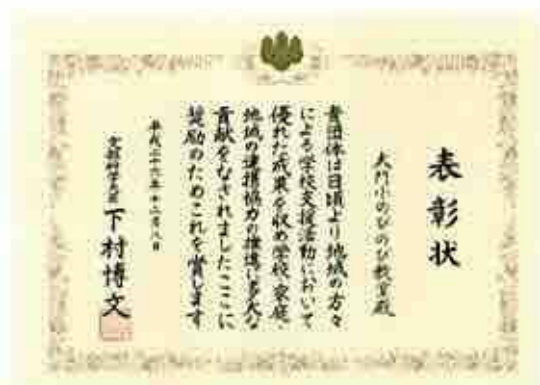 表彰状
大門小のびのび教育殿
貴団体は日頃より地域の方々
による学校支援活動において
優れた成果を収め学校、家庭、
地域の連携協力の推進に多大な
貢献をなされましたここに
奨励のためこれを賞します
平成二十六年十二月八日
文部科学大臣 下村博文